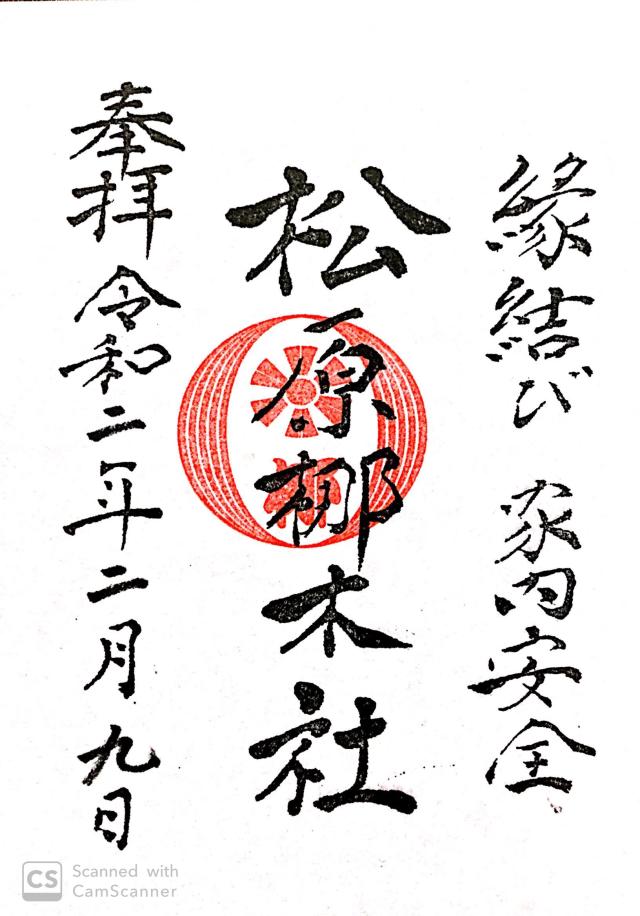 縁結び 家内安全
松原椰木社
奉拝 令和二年二月九日
CS Scanned with
CamScanner